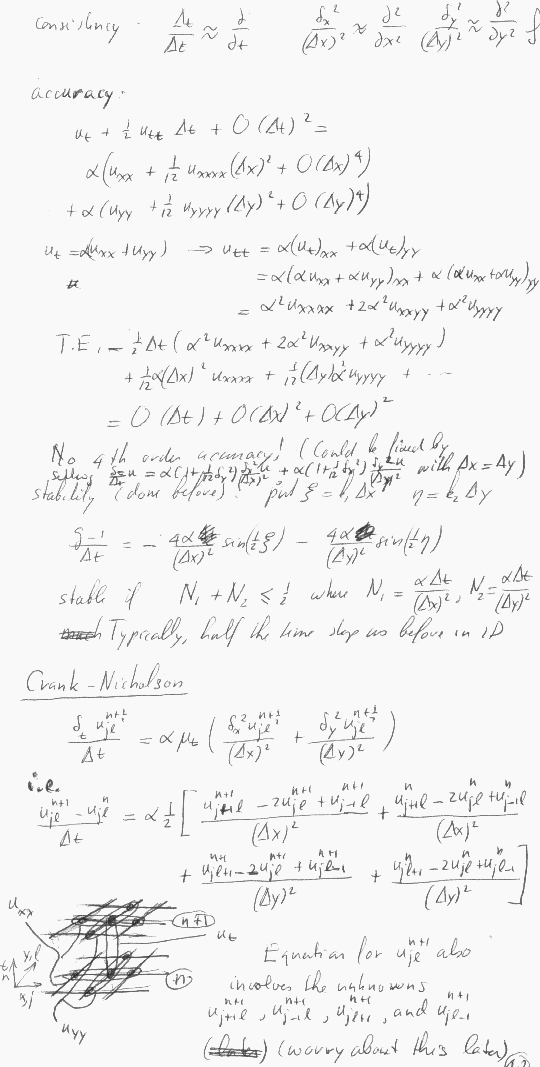 consistency. Δt/Δt ≈ ∂/∂t δx²/(Δx)² ≈ ∂²/∂x² δy²/(Δy)² ≈ ∂²/∂y²
accuracy.
u_t + ½ u_tt Δt + O(Δt)² =
α(u_xx + 1/12 u_xxxx (Δx)² + O(Δx)⁴)
+ α(u_yy + 1/12 u_yyyy (Δy)² + O(Δy)⁴)
u_t = α(u_xx + u_yy) ⇒ u_tt = α(u_t)_xx + α(u_t)_yy
= α(αu_xx + αu_yy)_xx + α(αu_xx + αu_yy)_yy
= α² u_xxxx + 2α² u_xxyy + α² u_yyyy
T.E. - ½Δt(α² u_xxxx + 2α² u_xxyy + α² u_yyyy)
+ 1/12 α(Δx)² u_xxxx + 1/12 (Δy)² α u_yyyy + ...
= O(Δt) + O(Δx)² + O(Δy)²
No 4th order accuracy! (Could be fixed by
setting with Δx = Δy)
stability (done before): put ξ = k₁Δx η = k₂Δy
(g-1)/Δt = - 4α/(Δx)² sin(½ξ) - 4α/(Δy)² sin(½η)
stable if N₁ + N₂ ≤ ½ where N₁ = αΔt/(Δx)², N₂ = αΔt/(Δy)²
Typically, half the time step as before in 1D
Crank-Nicholson
δ_t u_jl^{n+½}/Δt = α μ_t ( δx² u_jl^{n+½}/(Δx)² + δy² u_jl^{n+½}/(Δy)² )
i.e.
(u_jl^{n+1} - u_jl^n)/Δt = α ½ [ (u_{j+1l}^{n+1} - 2u_jl^{n+1} + u_{j-1l}^{n+1})/(Δx)² + (u_{j+1l}^n - 2u_jl^n + u_{j-1l}^n)/(Δx)²
+ (u_{jl+1}^{n+1} - 2u_jl^{n+1} + u_{jl-1}^{n+1})/(Δy)² + (u_{jl+1}^n - 2u_jl^n + u_{jl-1}^n)/(Δy)² ]
u_xx
n+1
u_t
t,n y,l
x,j
n
u_yy
Equation for u_jl^{n+1} also
involves the unknowns
u_{j+1l}^{n+1}, u_{j-1l}^{n+1}, u_{jl+1}^{n+1}, and u_{jl-1}^{n+1}
(later) (worry about this later)